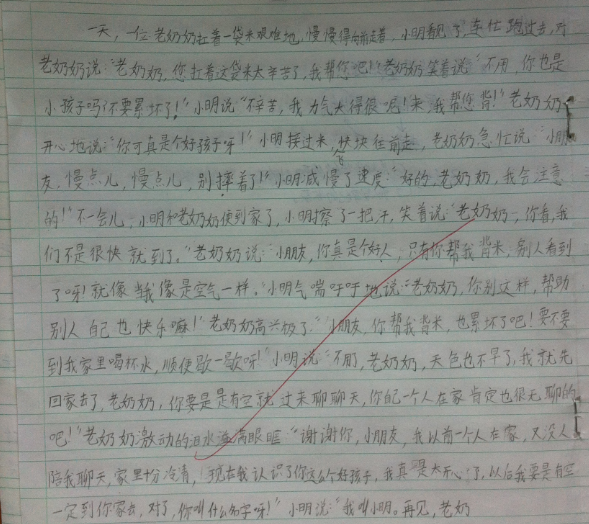 一天，一位老奶奶扛着一袋米艰难地，慢慢得向前走着，小明看见了，连忙跑过去，对
老奶奶说：“老奶奶，您扛着这袋米太辛苦了，我帮您吧！”老奶奶笑着说：“不用，你也是
小孩子吗不要累坏了！”小明说“不辛苦，我力气大得很呢！来，我帮您背！”老奶奶
开心地说：“你可真是个好孩子呀！”小明接过来，快快往前走，老奶奶急忙说：“小朋
友，慢点儿，慢点儿，别摔着了！”小明减慢了速度：“好的，老奶奶，我会注意
的！”不一会儿，小明和老奶奶便到家了，小明擦了一把汗，笑着说：“老奶奶，你看，我
们不是很快就到了。”老奶奶说：“小朋友，你真是个好人，只有你帮我背米，别人看到
了呀！就像当我像是空气一样。”小明气喘吁吁地说：“老奶奶，你别这样，帮助
别人自己也快乐嘛！”老奶奶高兴极了。“小朋友，你帮我背米，也累坏了吧！要不要
到我家里喝杯水，顺便歇一歇呀！”小明说：“不用，老奶奶，天色也不早了，我就先
回家去了，老奶奶，你要是是有空就过来聊聊天，你自己一个人在家肯定也很无聊的
吧！”老奶奶激动的泪水满眼眶：“谢谢你，小朋友，我以前一个人在家，又没人
陪我聊天，家里十分冷清，现在我认识了你这么个好孩子，我真是太开心了，以后我要是有空
一定到你家去，对了，你叫什么名字呀！”小明说：“我叫小明。再见，老奶